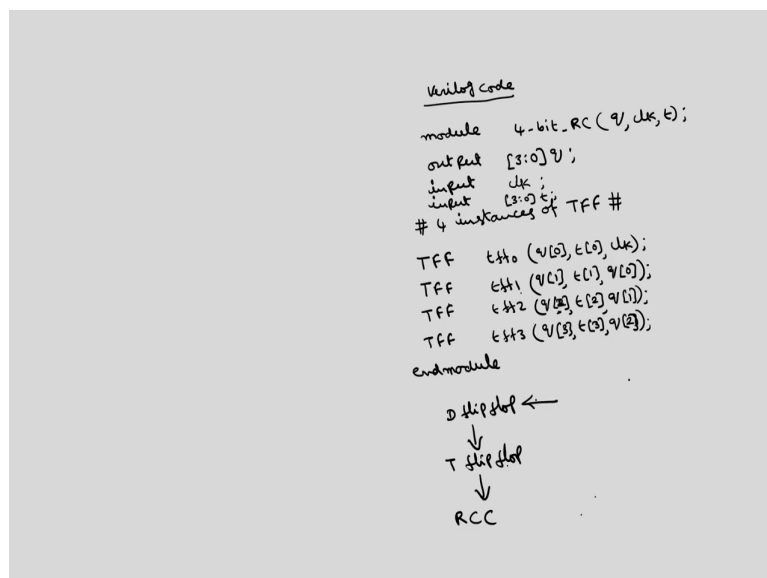 Verilog code
module 4-bit_RC (q, clk, t);
output [3:0] q;
input clk;
input [3:0] t;
# 4 instances of TFF #
TFF tff0 (q[0], t[0], clk);
TFF tff1 (q[1], t[1], q[0]);
TFF tff2 (q[2], t[2], q[1]);
TFF tff3 (q[3], t[3], q[2]);
endmodule
D flipflop ←
↓
T flipflop
↓
RCC